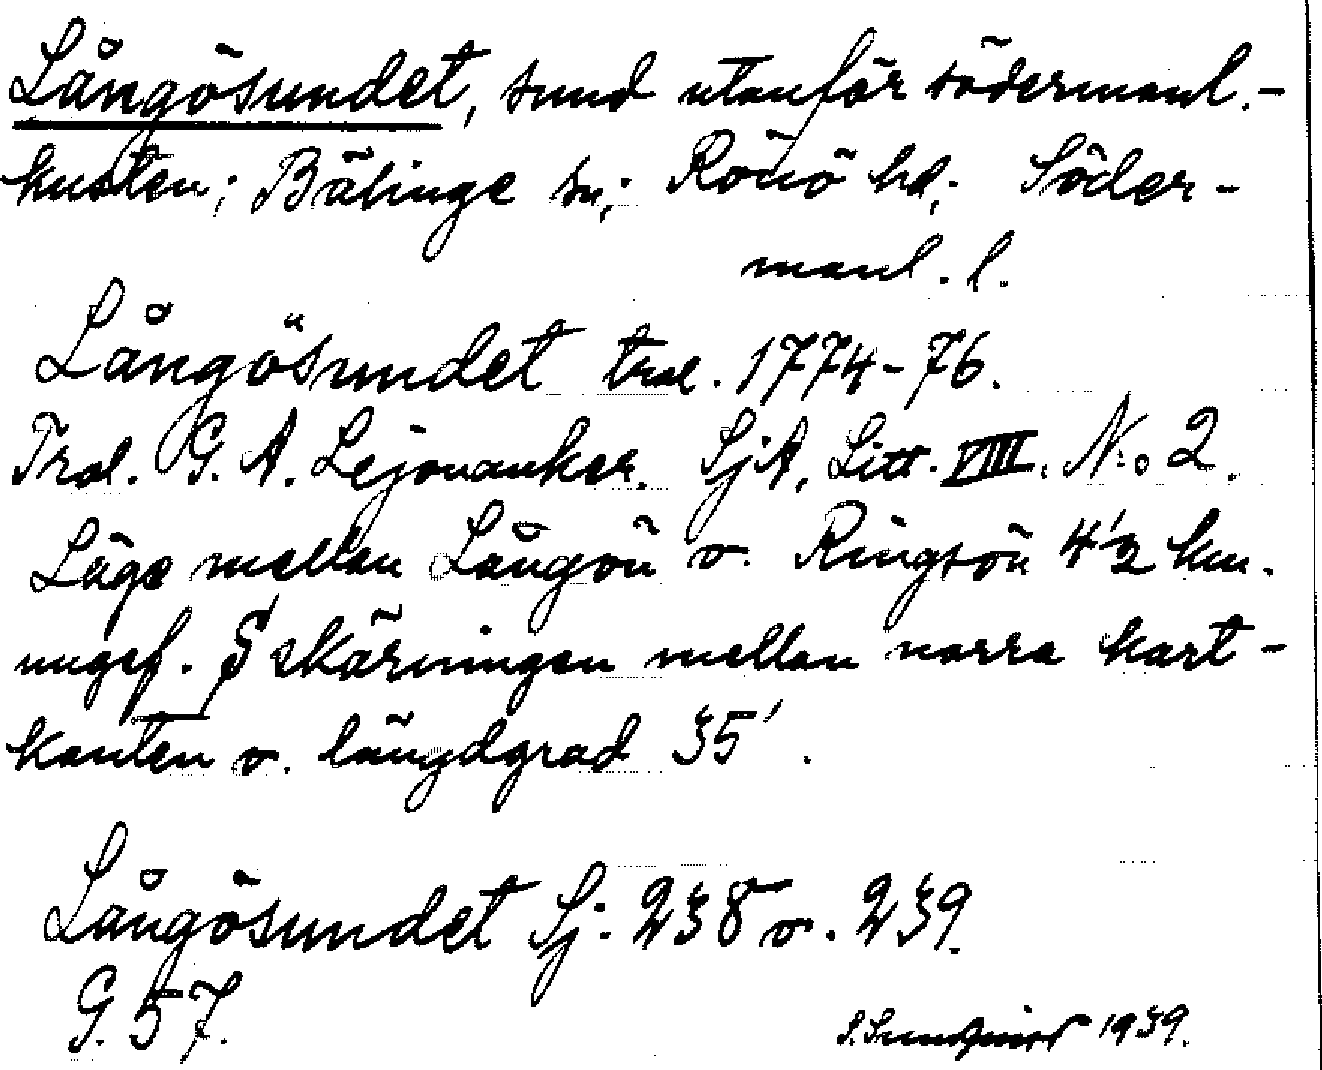 Långösundet, sund utanför södermanl.-
kusten; Bälinge sn; Rönö hd; Söder-
manl. l.
Långösundet trol. 1774-76.
Trol. G. A. Lejonanker. SjA, Litt. VIII. No 2.
Läge mellan Långön o. Ringsön 4 1/2 km.
ungef. S skärningen mellan norra kart-
kanten o. längdgrad 35'.
Långösundet Sj. 238 o. 239.
G. 57.
1939.